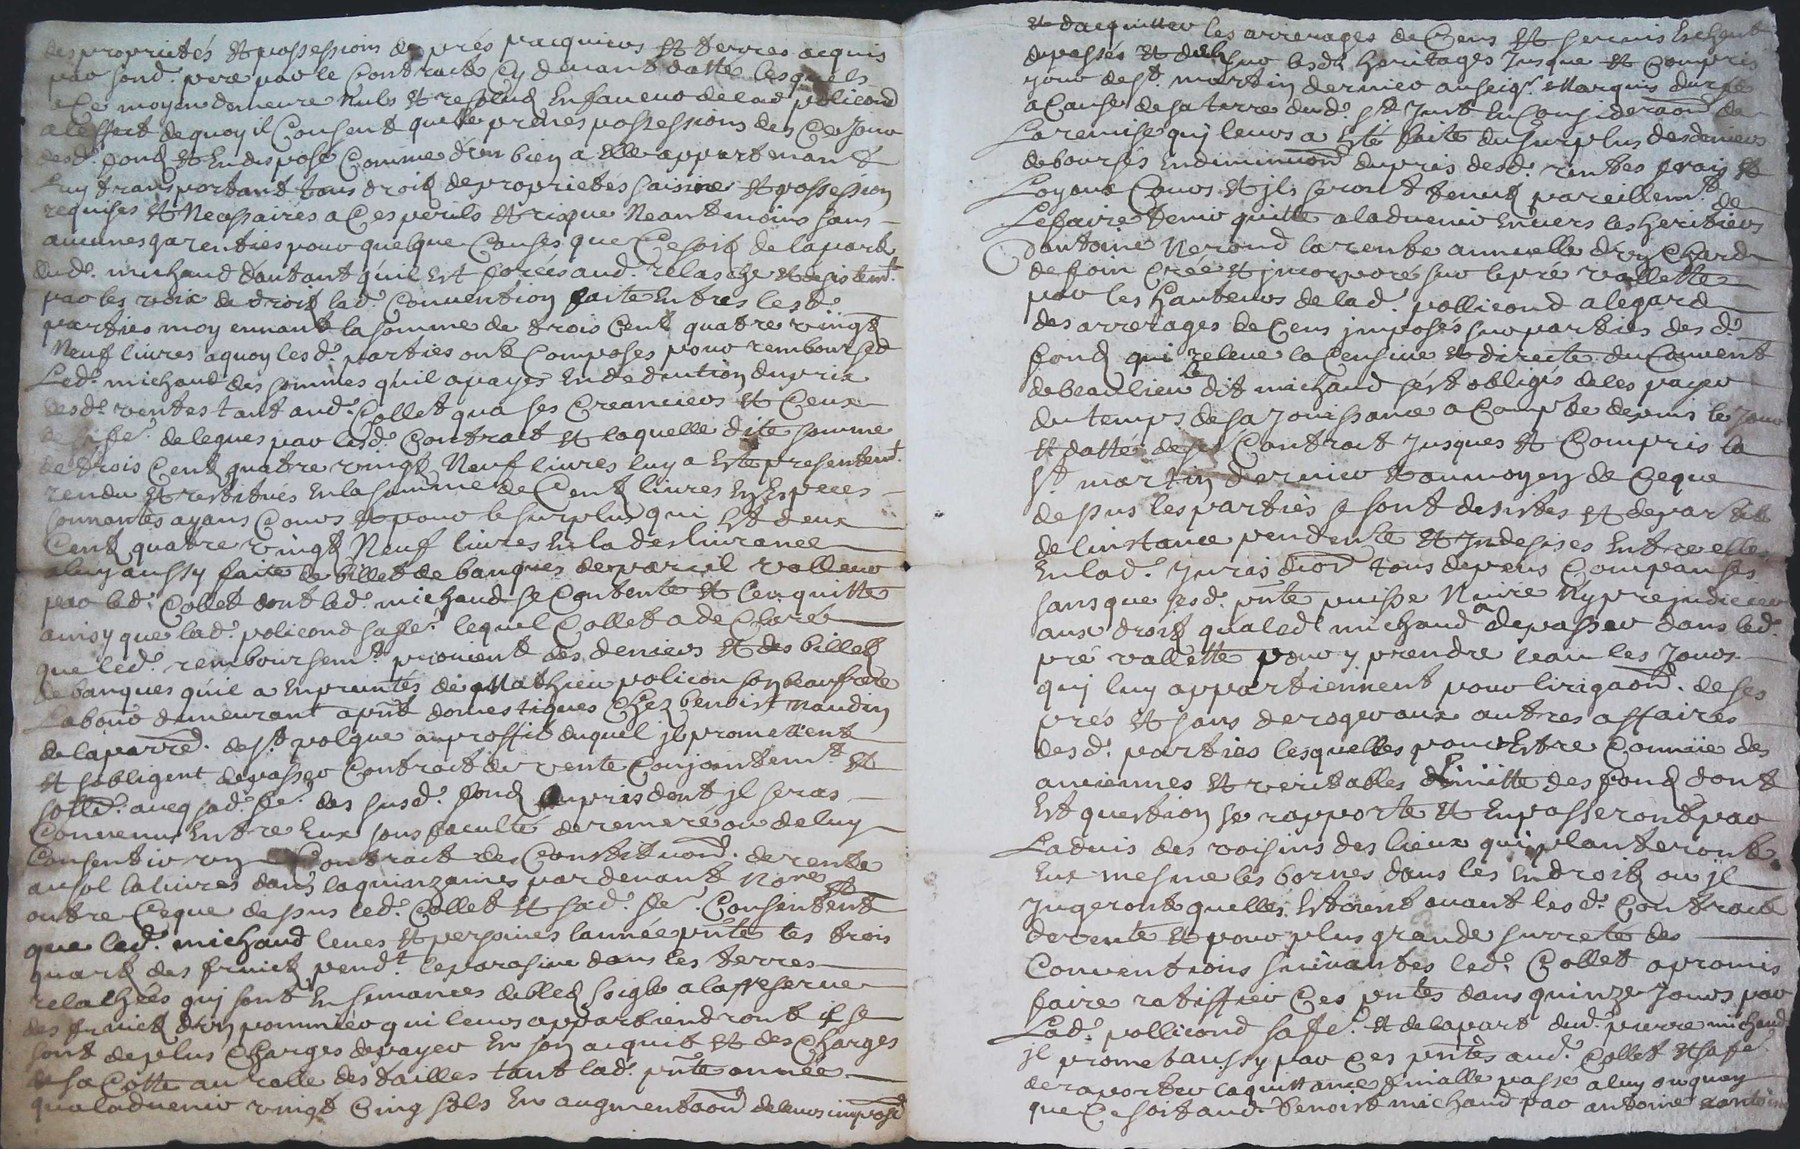 des proprietés et possessions de prés pacquiers et terres acquis
par sond. pere par le Contract Cy devant datté lesquels
a Ce moyen demeure Nuls et resolus En faveur de lad policond
a leffect de quoy il Consent quelle prenes possessions des Ce Jour
desd. fond et En dispose Comme d'un bien a Elle appartenant
Luy transportant tous droit de proprietés saisine et possession
requises et Necessaires a Ces perils et risque Neantmoins sans
aucunes garenties pour quelque Causes que Ce soit de la part
dud. michaud d'autant qu'il Est forcés aud. relasche et desistemt.
par les voix de droit lad. Convention faite Entres lesd.
parties moyennant la somme de trois Cent quatre vingt
Neuf livres a quoy lesd. parties ont Composes pour rembourser
Led. michaud des sommes qu'il a payes En deduction du prix
desd. ventes tant aud. Collet qua ses Creanciers et Ceux
de sa fe. delegues par lesd. Contrait et laquelle dite somme
de trois Cent quatre vingt Neuf livres luy a Este presentemt.
rendu et restitués En la somme de Cent livres En Especes
sonnantes ayans Cours et pour le surplus qui Est deux
Cent quatre vingt Neuf livres En la deslivrance
a luy aussy faite de billet de banques de pareil valleur
par led. Collet dont led. michaud se Contente et l'en quitte
ainsy que lad. policond sa fe. lequel Collet a declaré
que led. remboursemt. provient des deniers et des billets
de banques qu'il a Enpruntés de Mathieu policon son beaufrere
Labour demeurant a pnt domestiques Chez benoist naudin
de la parred. de st polgue au proffit duquel il promettent
et sobligent de passer Contract de vente Conjointemt. et
solid. avecq sad. fe. des susd. fond au pris dont il seras
Convenu Entre Eux sous faculté de remere ou de luy
Consentir un Contract de Constituaon. de rente
au sol la livres dans la quinzaines par devant Nore.
outre Ceque dessus led. Collet et sad. fe. Consentent
que led. michaud leves et persoives lannée pnte les trois
quart des fruict pendt. le parasive dans les terres
relachées qui sont En semances de bled soigle a la reserve
des fruict d'un pommier qui leurs appartiendront il se
sont de plus Charges de payer En son acquit et des Charges
de sa Cotte au rolle des tailles tant lad. pnte année
qua ladvenir vingt Cinq sols En augmentaon de leurs imposn
et dacquitter les arrerages de Cens et servis Escheut
du passés et deub sur lesd. heritages Jusque et Compris
jour de st. martin dernier au seigr. Marquis durfé
a Cause de sa terre dud. st. Just En Consideraon. de
La remise qui leurs a Este faite du surplus des deniers
debourses En diminuon du pris desd. ventes frais et
Loyaux Cours et ils seront tenus pareillemt. de
Le faire tenir quitte a ladvenir Envers les heritiers
D'antoine Nerond la rente annuelle d'un Chard
de foin Creé et jncorporé sur le pré vallette
par les hauteurs de lad. pollicond a legard
des arrerages de Cens jmposés sur parties desd.
fond qui releve la Censive et directe du Couvent
de beaulieu le dit michaud s'est obligés de les payer
du temps de sa Jouissance a Compter depuis le Jour
et datte de son Contrait Jusques et Compris la
st. martin dernier et au moyens de Ceque
dessus les parties se sont desistes et departit
de linstance pendente et Jndesises Entre elles
En lad. Jurisdiod tous depens Compansés
sans que lesd. pnte puisse Nuire Ny prejudicier
aux droit qua led michaud a de passer dans led.
pré vallette pour y prendre leau les Jours
qui luy appartiennent pour lirigaon. de ses
prés et sans deroger aux autres affaires
desd. parties lesquelles pour Estre Connüe des
anciennes et veritables limitte des fond dont
Est question se rapporte et En passeront par
Ladvis des voisins des lieux qui planteront
Eux mesme les bornes dans les Endroit ou jl
Jugeront quelles Estoient avant lesd. Contrait
de vente et pour plus grande surreté des
Conventions suivantes led. Collet a promis
faire ratiffier Ces pntes dans quinze Jours par
Lad. pollicond sa fe. et de la part dud. pierre michaud
jl promet aussy par Ces pntes aud. Collet et sa fe
de raporter la quittance finialle passe a luy ou quoy
que Ce soit aud. benoist michaud par antoine